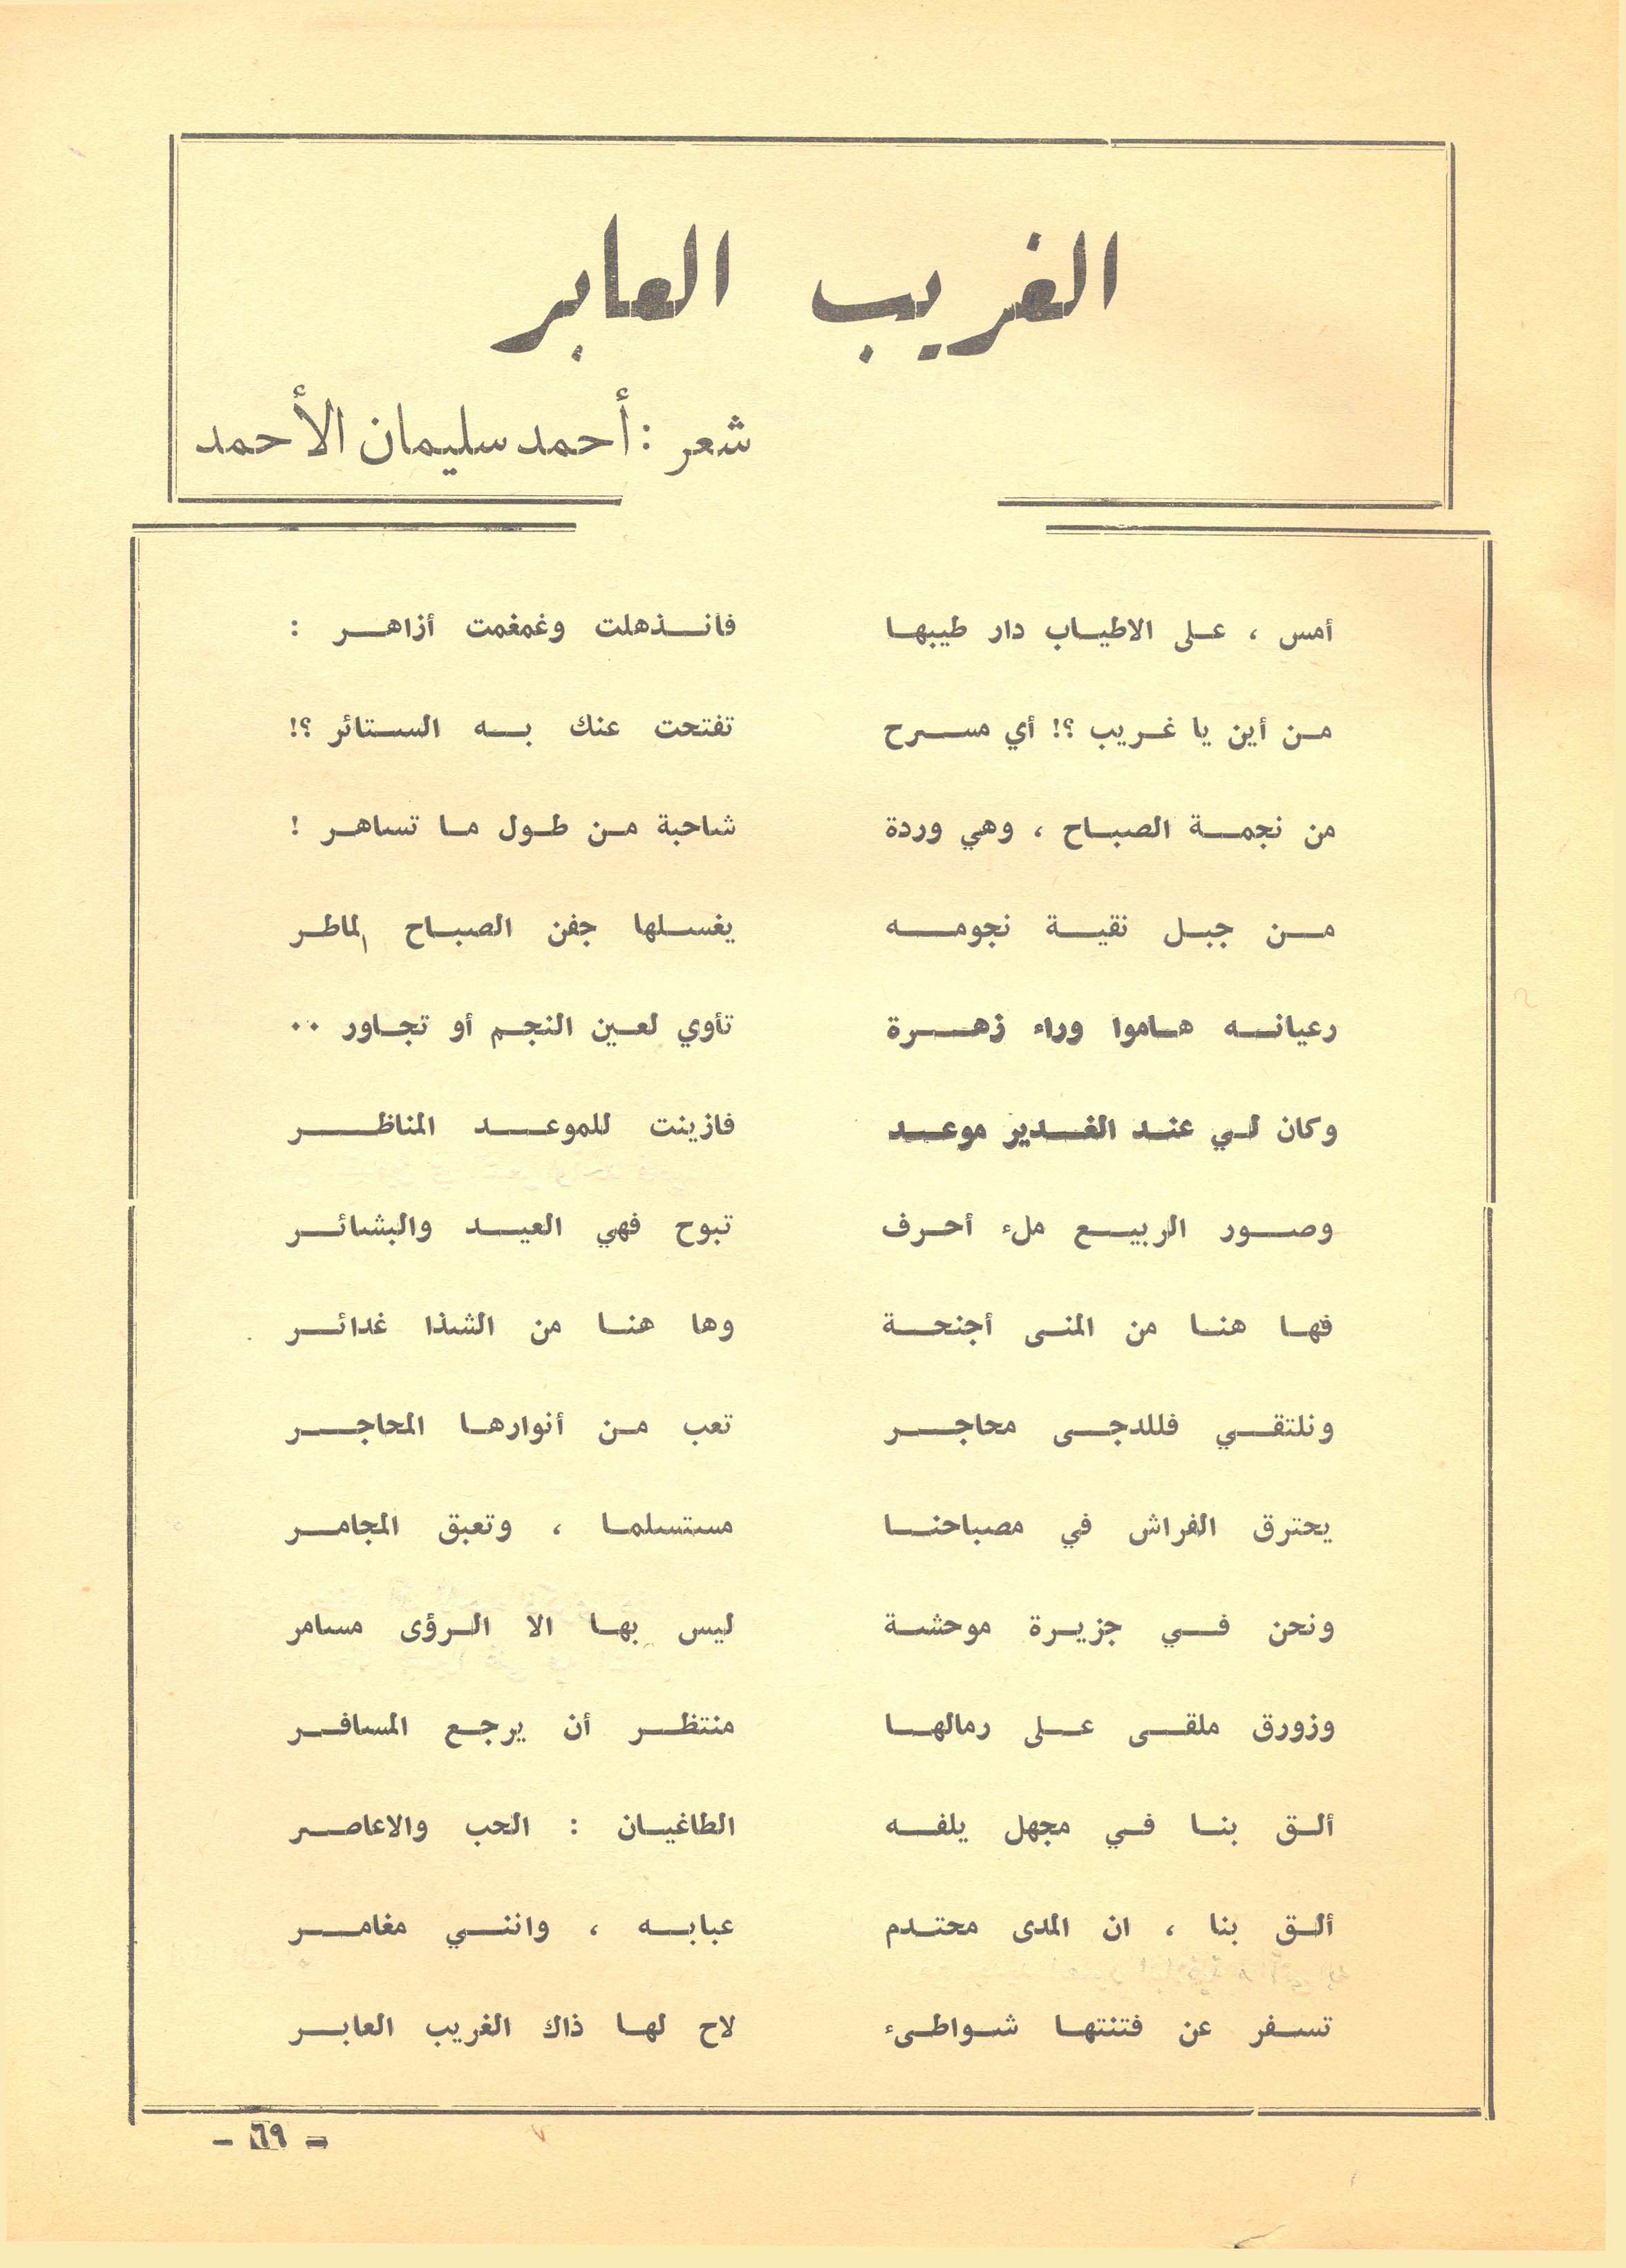 الغريب العابر
شعر : أحمد سليمان الأحمد
أمس ، على الاطياب دار طيبها فانذهلت وغمغمت أزاهر :
من أين يا غريب ؟! أي مسرح تفتحت عنك به الستائر ؟!
من نجمة الصباح ، وهي وردة شاحبة من طول ما تساهر !
من جبل نقية نجومه يغسلها جفن الصباح الماطر
رعيانه هاموا وراء زهرة تأوي لعين النجم أو تجاور ..
وكان لي عند الغدير موعد فازينت للموعد المناظر
وصور الربيع ملء أحرف تبوح فهي العيد والبشائر
فها هنا من المنى أجنحة وها هنا من الشذا غدائر
ونلتقي فللدجى محاجر تعب من أنوارها المحاجر
يحترق الفراش في مصباحنا مستسلما ، وتعبق المجامر
ونحن في جزيرة موحشة ليس بها الا الرؤى مسامر
وزورق ملقى على رمالها منتظر أن يرجع المسافر
ألق بنا في مجهل يلفه الطاغيان : الحب والاعاصر
ألق بنا ، ان المدى محتدم عبابه ، وانني مغامر
تسفر عن فتنتها شواطىء لاح لها ذاك الغريب العابر
- ٦٩ -